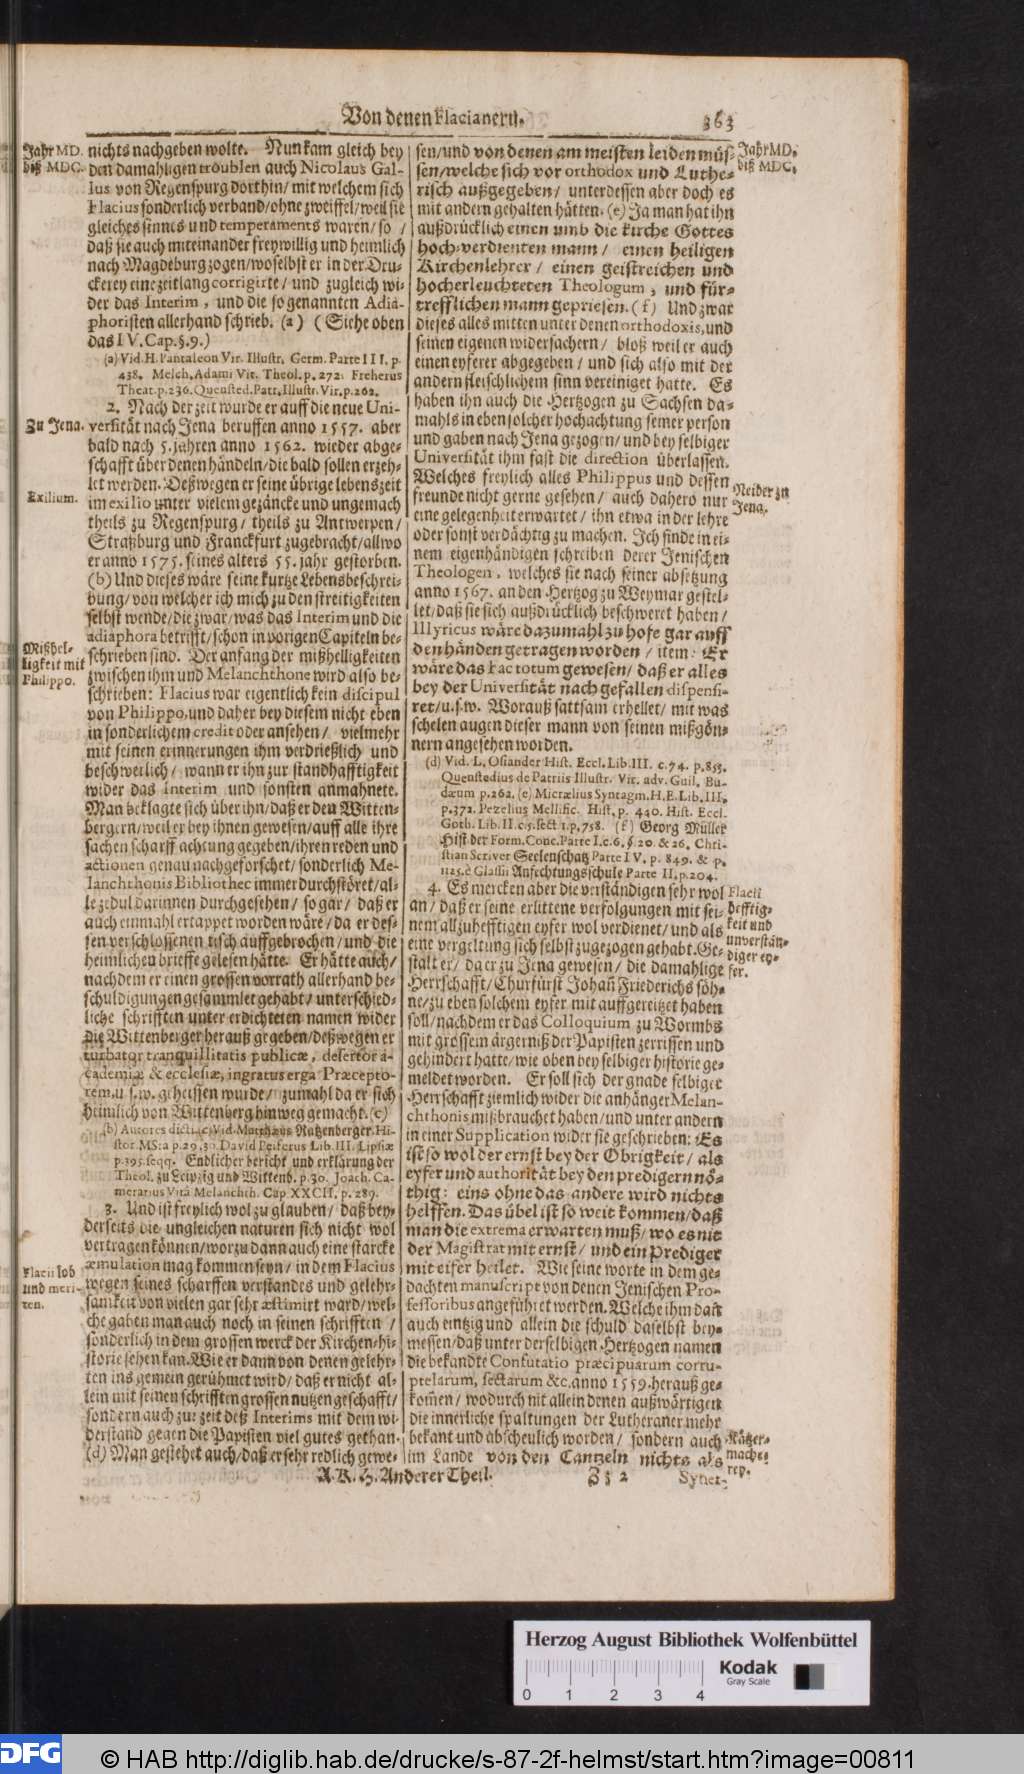 Von denen Flacianern. 363
Jahr MD.
biß MDC.
nichts nachgeben wolte. Nun kam gleich bey
den damahligen troublen auch Nicolaus Gal-
lus von Regenspurg dorthin/ mit welchem sich
Flacius sonderlich verband/ ohne zweiffel/ weil sie
gleiches sinnes und temperaments waren/ so /
daß sie auch miteinander freywillig und heimlich
nach Magdeburg zogen/ woselbst er in der Dru-
ckerey eine zeitlang corrigirte/ und zugleich wi-
der das Interim, und die so genannten Adia-
phoristen allerhand schrieb. (a) (Siehe oben
das IV. Cap. §. 9.)
(a) Vid. H. Pantaleon Vir. Illustr. Germ. Parte III. p.
438. Melch. Adami Vit. Theol. p. 272. Freherus
Theat. p. 236. Quensted. Patr. Illustr. Vir. p. 262.
Zu Jena.
2. Nach der zeit wurde er auff die neue Uni-
versität nach Jena beruffen anno 1557. aber
bald nach 5. jahren anno 1562. wieder abge-
schafft über denen händeln/ die bald sollen erzeh-
let werden. Deßwegen er seine übrige lebenszeit
Exilium.
im exilio unter vielem gezäncke und ungemach
theils zu Regenspurg/ theils zu Antwerpen/
Straßburg und Franckfurt zugebracht/ allwo
er anno 1575. seines alters 55. jahr gestorben.
(b) Und dieses wäre seine kurtze Lebensbeschrei-
bung/ von welcher ich mich zu den streitigkeiten
selbst wende/ die zwar/ was das Interim und die
adiaphora betrifft/ schon in vorigen Capiteln be-
Mißhel-
ligkeit mit
Philippo.
schrieben sind. Der anfang der mißhelligkeiten
zwischen ihm und Melanchthone wird also be-
schrieben: Flacius war eigentlich kein discipul
von Philippo, und daher bey diesem nicht eben
in sonderlichem credit oder ansehen/ vielmehr
mit seinen erinnerungen ihm verdrießlich und
beschwerlich / wann er ihn zur standhafftigkeit
wider das Interim und sonsten anmahnete.
Man beklagte sich über ihn/ daß er den Witten-
bergern/ weil er bey ihnen gewesen/ auff alle ihre
sachen scharff achtung gegeben/ ihren reden und
actionen genau nachgeforschet/ sonderlich Me-
lanchthonis Bibliothec immer durchstöret/ al-
le zedul darinnen durchgesehen/ so gar / daß er
auch einmahl ertappet worden wäre/ da er des-
sen verschlossenen tisch auffgebrochen/ und die
heimlichen brieffe gelesen hätte. Er hätte auch/
nachdem er einen grossen vorrath allerhand be-
schuldigungen gesammlet gehabt/ unterschied-
liche schrifften unter erdichteten namen wider
die Wittenberger herauß gegeben/ deßwegen er
turbator tranquillitatis publicæ, desertor a-
cademiæ & ecclesiæ, ingratus erga Præcepto-
rem, u. s. w. geheissen wurde/ zumahl da er sich
heimlich von Wittenberg hinweg gemacht. (c)
(b) Autores dicti. (c) Vid. Matthæus Ratzenberger Hi-
stor. MS. a p. 29. 30. David Peiferus Lib. III. Lipsiæ
p. 395. seqq. Endlicher bericht und erklärung der
Theol. zu Leipzig und Wittenb. p. 30. Joach. Ca-
merarius Vitâ Melanchth. Cap. XXCII. p. 289.
3. Und ist freylich wol zu glauben/ daß bey-
derseits die ungleichen naturen sich nicht wol
vertragen können/ worzu dann auch eine starcke
Flacii lob
und meri-
ten.
æmulation mag kommen seyn/ in dem Flacius
wegen seines scharffen verstandes und gelehr-
samkeit von vielen gar sehr æstimirt ward/ wel-
che gaben man auch noch in seinen schrifften /
sonderlich in dem grossen werck der Kirchen-hi-
storie sehen kan. Wie er dann von denen gelehr-
ten ins gemein gerühmet wird/ daß er nicht al-
lein mit seinen schrifften grossen nutzen geschafft/
sondern auch zur zeit deß Interims mit dem wi-
derstand gegen die Papisten viel gutes gethan.
(d) Man gestehet auch/ daß er sehr redlich gewe-
A. K. H. Anderer Theil.
Jahr MD.
biß MDC.
sen/ und von denen am meisten leiden müs-
sen/ welche sich vor orthodox und Luthe-
risch außgegeben/ unterdessen aber doch es
mit andern gehalten hätten. (e) Ja man hat ihn
außdrücklich einen umb die kirche Gottes
hoch-verdienten mann/ einen heiligen
Kirchenlehrer / einen geistreichen und
hocherleuchteten Theologum, und für-
trefflichen mann gepriesen. (f) Und zwar
dieses alles mitten unter denen orthodoxis, und
seinen eigenen widersachern/ bloß weil er auch
einen eyferer abgegeben / und sich also mit der
andern fleischlichem sinn vereiniget hatte. Es
haben ihn auch die Hertzogen zu Sachsen da-
mahls in eben solcher hochachtung seiner person
und gaben nach Jena gezogen/ und bey selbiger
Universität ihm fast die direction überlassen.
Neider zu
Jena.
Welches freylich alles Philippus und dessen
freunde nicht gerne gesehen/ auch dahero nur
eine gelegenheit erwartet / ihn etwa in der lehre
oder sonst verdächtig zu machen. Ich finde in ei-
nem eigenhändigen schreiben derer Jenischen
Theologen, welches sie nach seiner absetzung
anno 1567. an den Hertzog zu Weymar gestel-
let/ daß sie sich außdrücklich beschweret haben/
Illyricus wäre dazumahl zu hofe gar auff
den händen getragen worden / item: Er
wäre das Factotum gewesen/ daß er alles
bey der Universität nach gefallen dispensi-
ret/ u. s. w. Worauß sattsam erhellet/ mit was
schelen augen dieser mann von seinen mißgön-
nern angesehen worden.
(d) Vid. L. Osiander Hist. Eccl. Lib. III. c. 74. p. 855.
Quenstedius de Patriis Illustr. Vir. adv. Guil. Bu-
dæum p. 262. (e) Micrælius Syntagm. H. E. Lib. III.
p. 372. Pezelius Mellific. Hist. p. 440. Hist. Eccl.
Goth. Lib. II. c. 5. sect. 1. p. 758. (f) Georg Müller
Hist der Form. Conc. Parte I. c. 6. §. 20. & 26. Chri-
stian Scriver Seelenschatz Parte IV. p. 849. & p.
1125. è Glassii Anfechtungschule Parte II. p. 204.
Flacii
hefftig-
keit und
unverstän-
diger ey-
fer.
4. Es mercken aber die verständigen sehr wol
an/ daß er seine erlittene verfolgungen mit sei-
nem allzuhefftigen eyfer wol verdienet/ und als
eine vergeltung sich selbst zugezogen gehabt. Ge-
stalt er/ da er zu Jena gewesen/ die damahlige
Herrschafft/ Churfürst Johann Friederichs söh-
ne/ zu eben solchem eyfer mit auffgereitzet haben
soll/ nachdem er das Colloquium zu Wormbs
mit grossem ärgerniß der Papisten zerrissen und
gehindert hatte/ wie oben bey selbiger historie ge-
meldet worden. Er soll sich der gnade selbiger
Herrschafft ziemlich wider die anhänger Melan-
chthonis mißbrauchet haben/ und unter andern
in einer Supplication wider sie geschrieben: Es
ist so wol der ernst bey der Obrigkeit/ als
eyfer und authorität bey den predigern nö-
thig: eins ohne das andere wird nichts
helffen. Das übel ist so weit kommen/ daß
man die extrema erwarten muß/ wo es nit
der Magistrat mit ernst/ und ein Prediger
mit eifer heilet. Wie seine worte in dem ge-
dachten manuscript von denen Jenischen Pro-
fessoribus angeführet werden. Welche ihm dañ
auch eintzig und allein die schuld daselbst bey-
messen/ daß unter derselbigen Hertzogen namen
die bekandte Confutatio præcipuarum corru-
ptelarum, sectarum &c. anno 1559. herauß ge-
kom̃en/ wodurch nit allein denen außwärtigen
die innerliche spaltungen der Lutheraner mehr
Kätzer-
mache-
rey.
bekant und abscheulich worden/ sondern auch
im Lande von den Cantzeln nichts als
Zz 2 Syner-
Herzog August Bibliothek Wolfenbüttel
0 1 2 3 4
Kodak
Gray Scale
DFG © HAB http://diglib.hab.de/drucke/s-87-2f-helmst/start.htm?image=00811